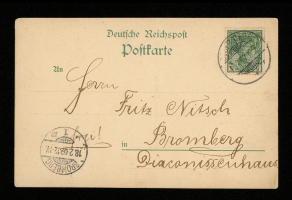 Deutsche Reichspost
Postkarte
An
Herrn
Fritz Nitsch
in Bromberg
Diaconissenhaus
BROMBERG